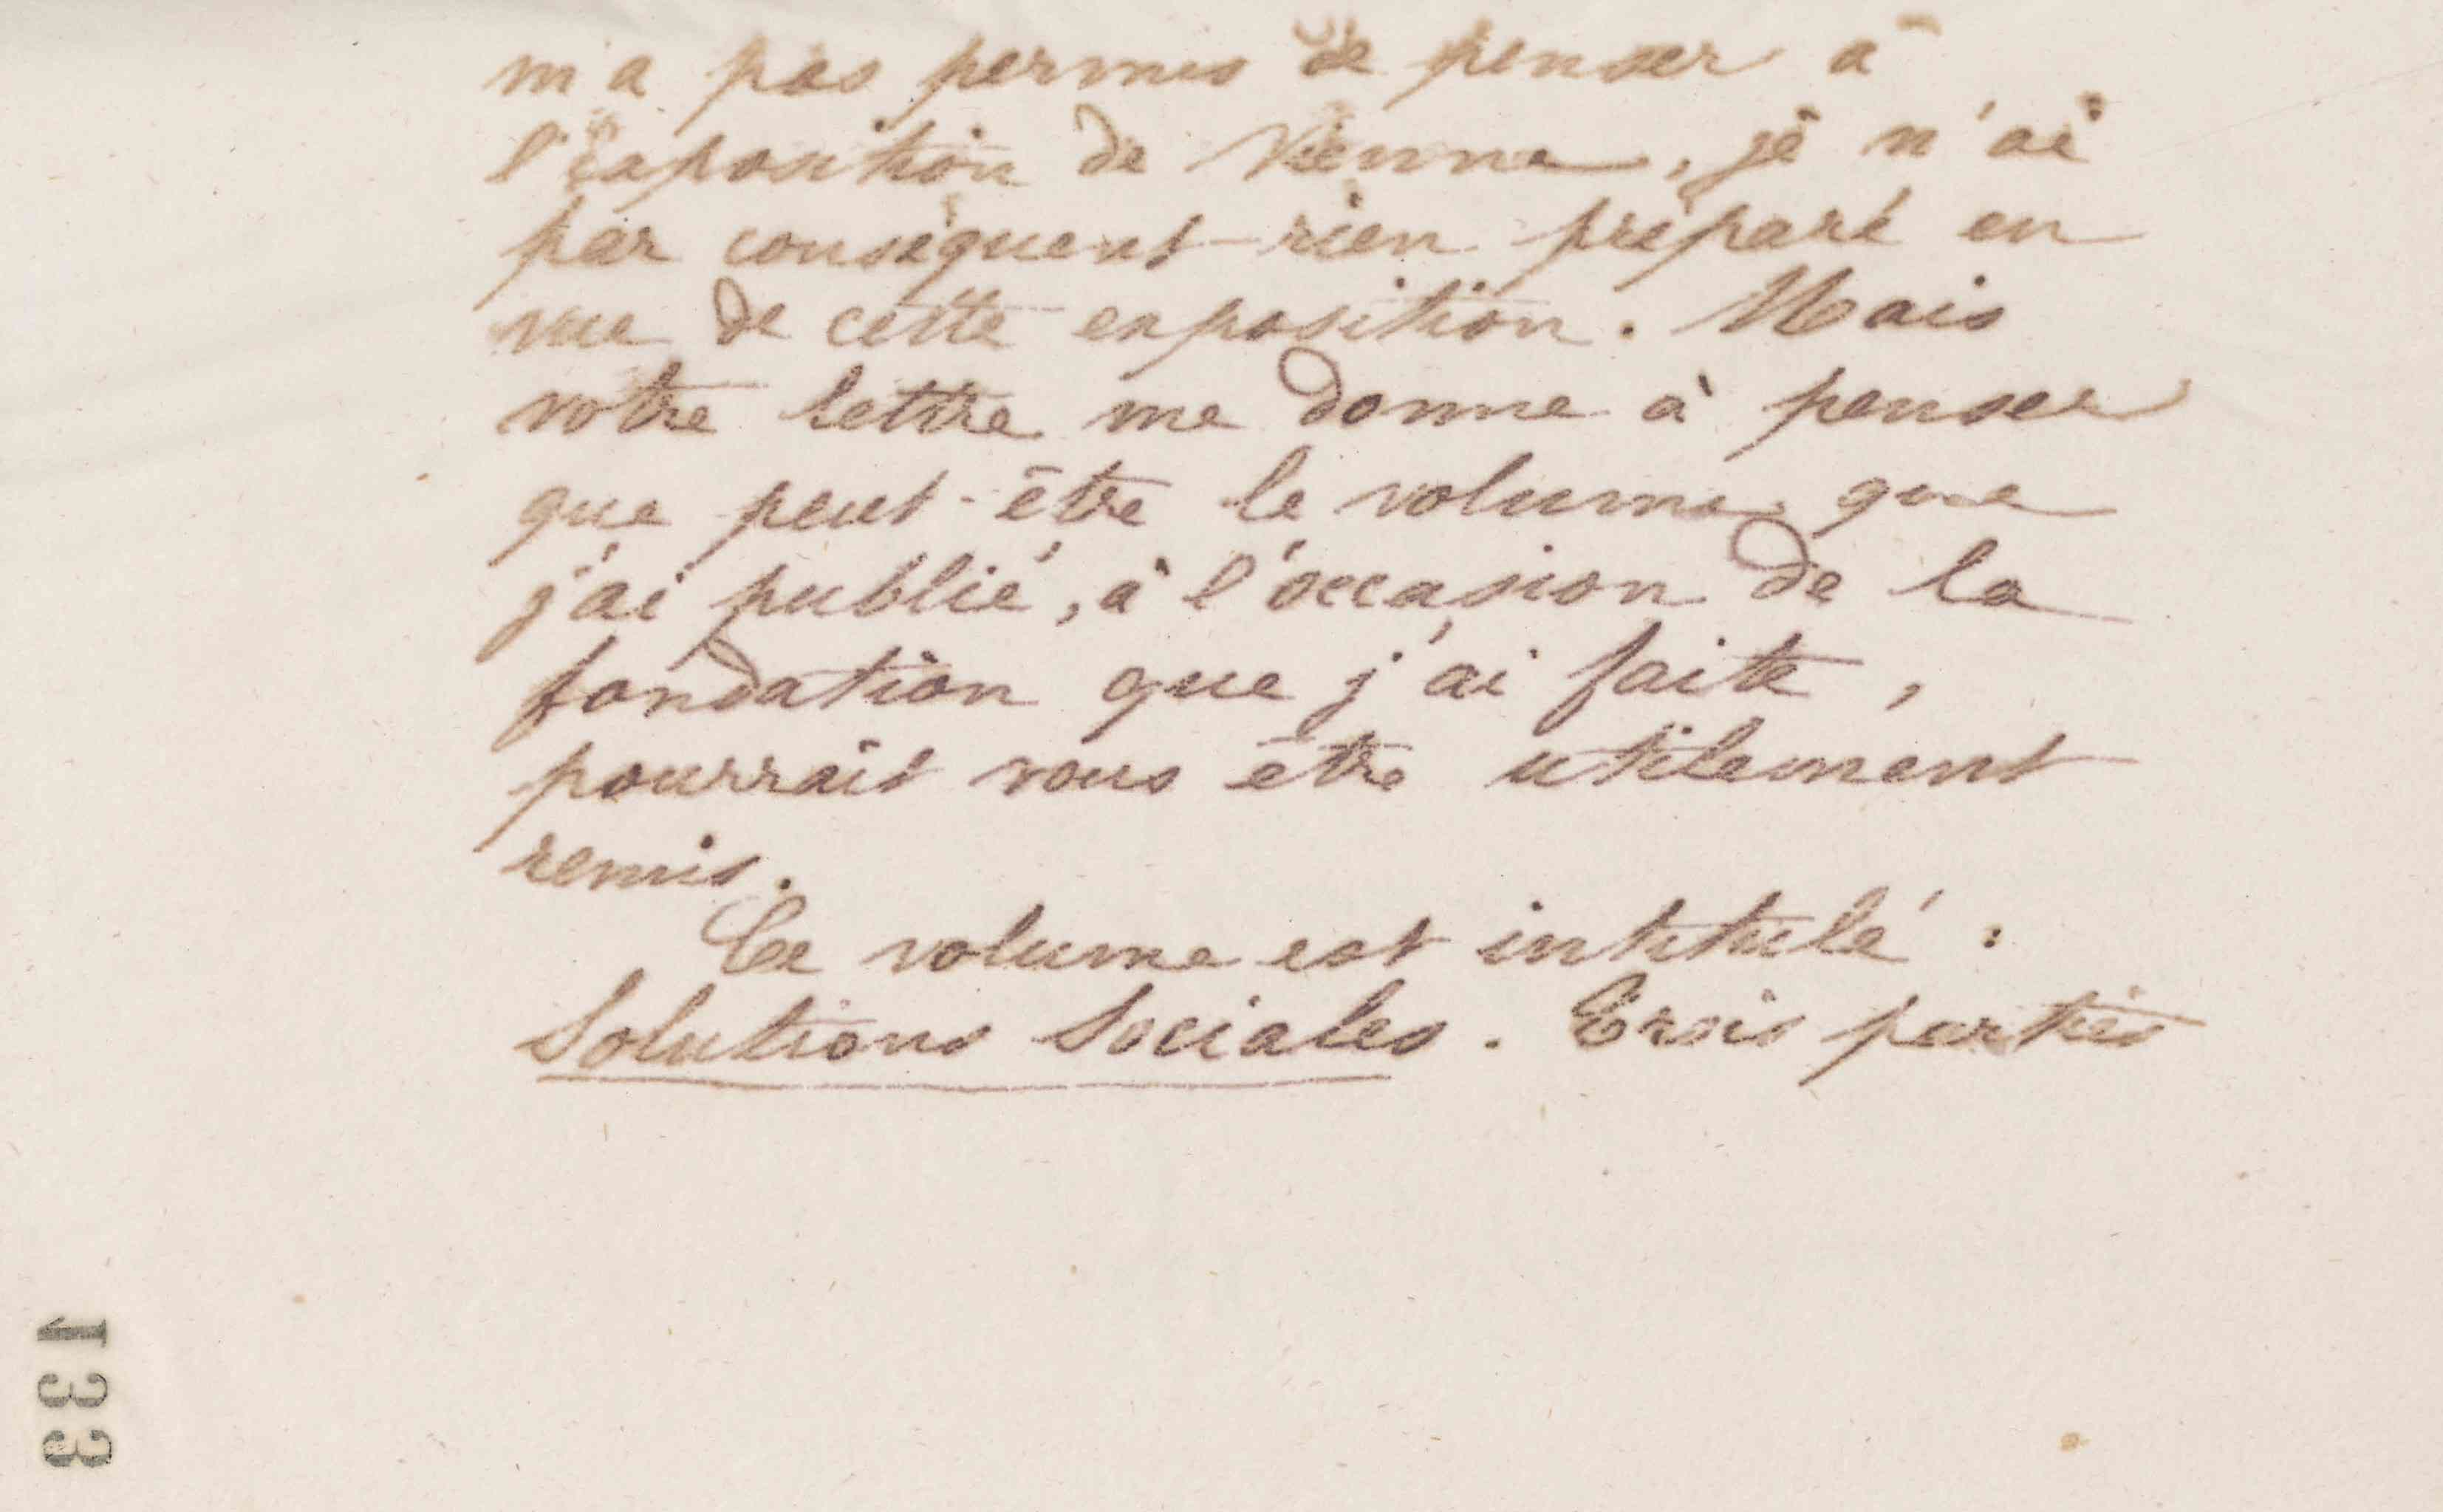 m'a pas permis de penser à
l'exposition de Vienne, je n'ai
par conséquent rien préparé en
vue de cette exposition. Mais
votre lettre me donne à penser
que peut-être le volume que
j'ai publié, à l'occasion de la
fondation que j'ai faite,
pourrait vous être utilement
remis.
Ce volume est intitulé :
Solutions Sociales. Trois parties
133